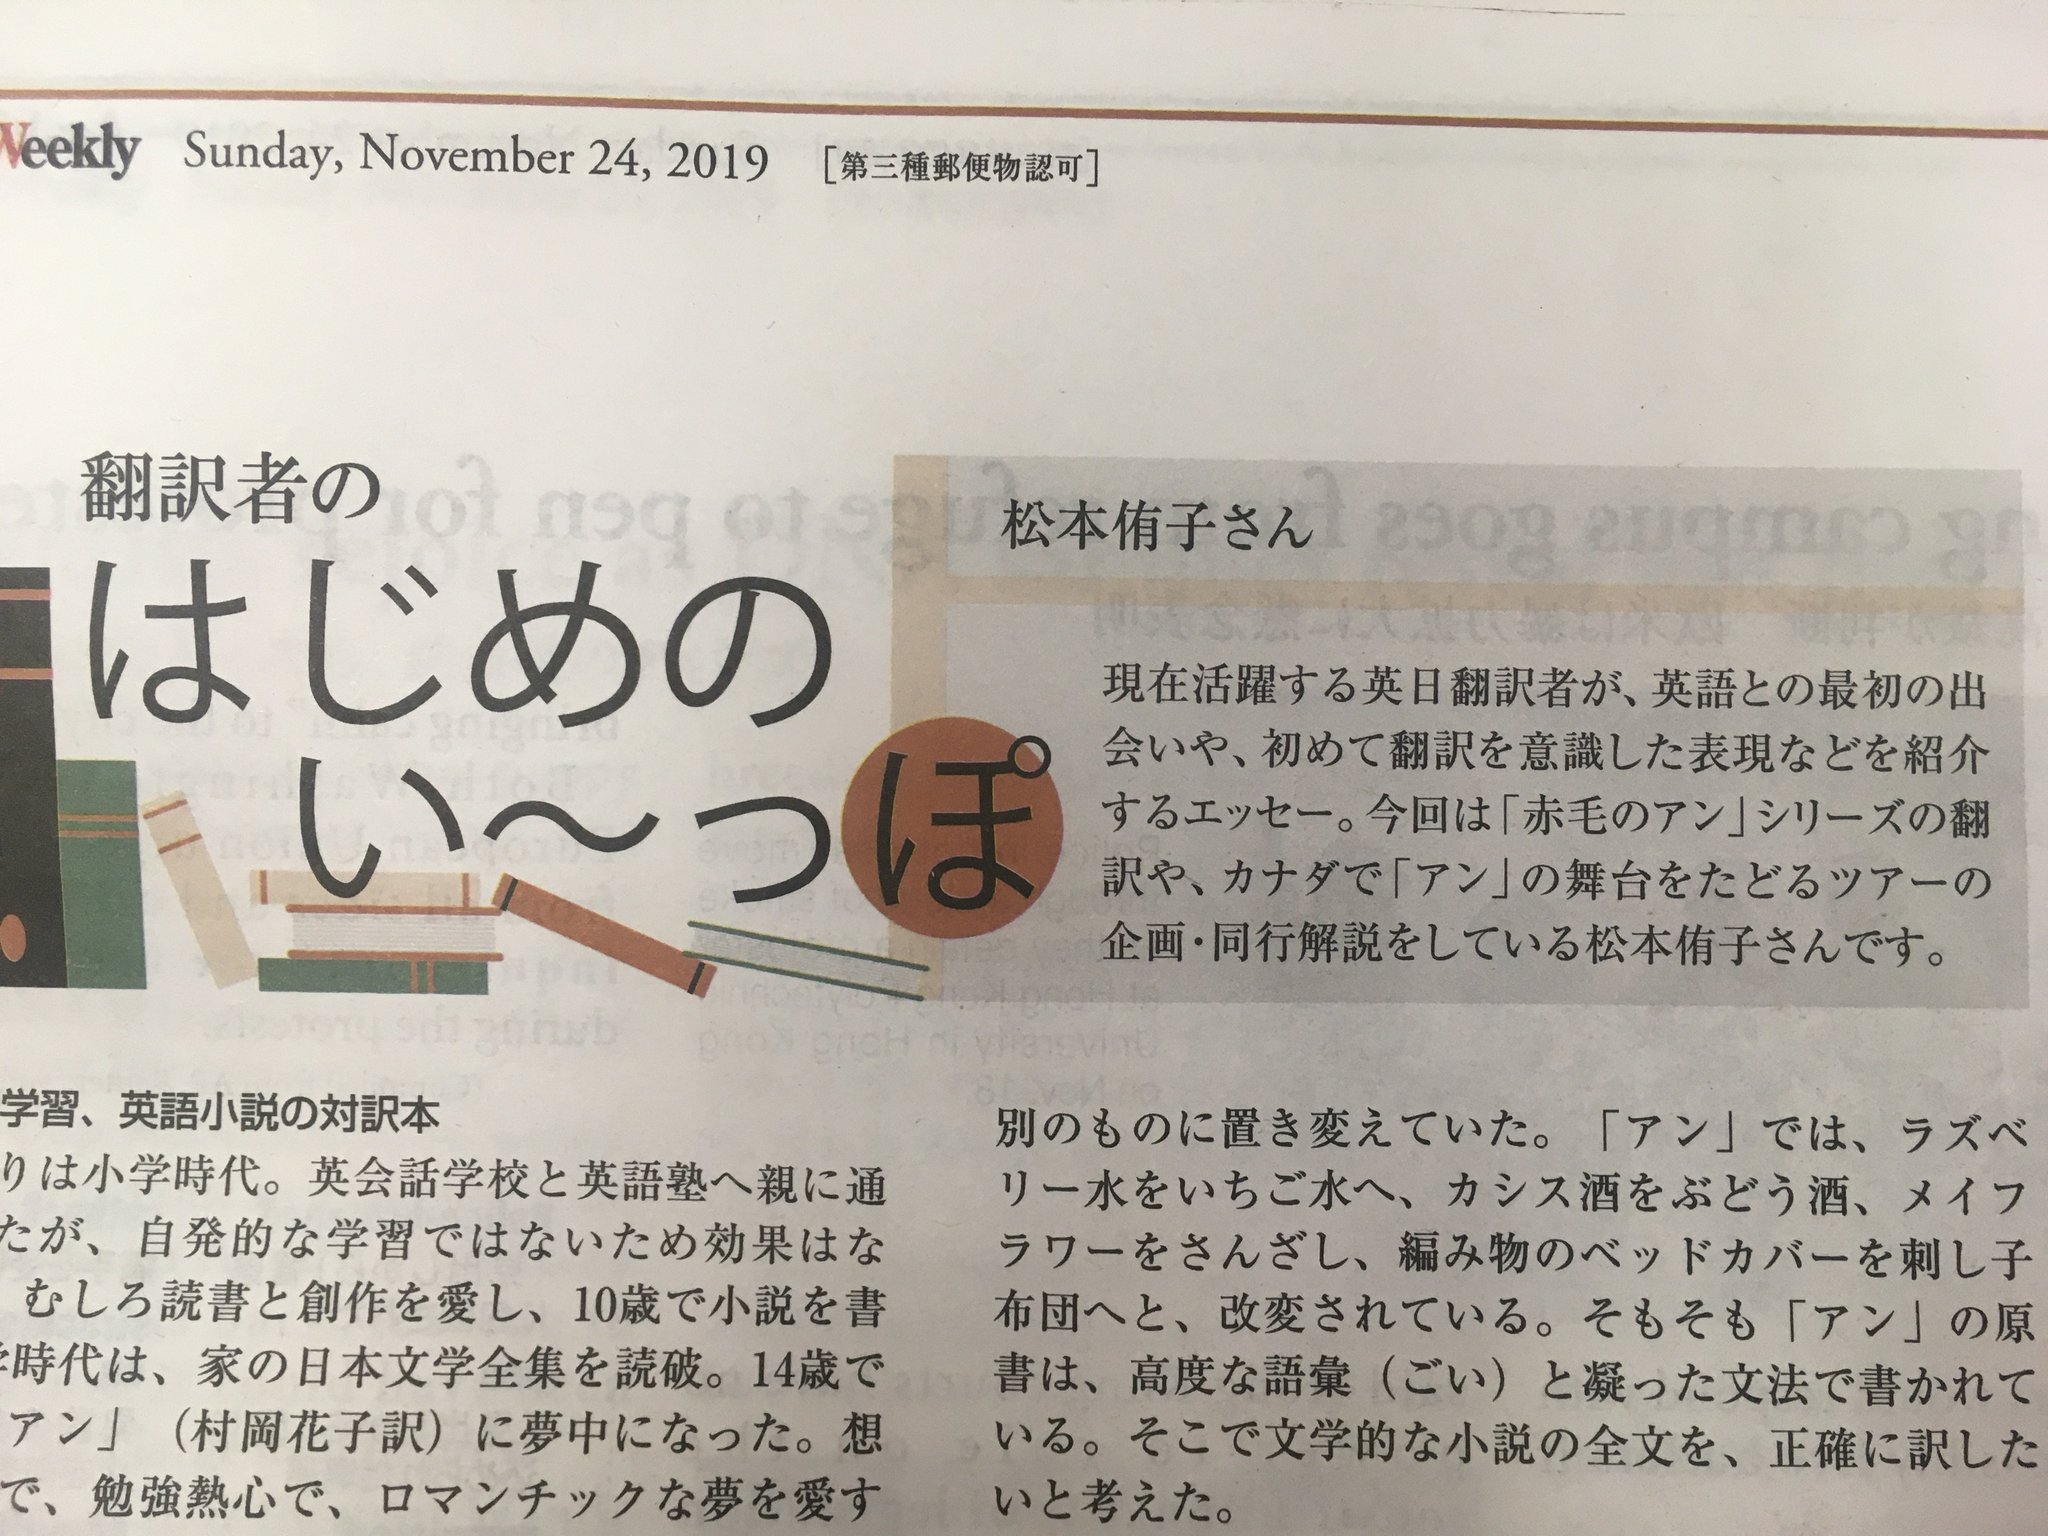 Weekly Sunday, November 24, 2019 [第三種郵便物認可]
翻訳者の
はじめの
い〜っぽ
松本侑子さん
現在活躍する英日翻訳者が、英語との最初の出
会いや、初めて翻訳を意識した表現などを紹介
するエッセー。今回は「赤毛のアン」シリーズの翻
訳や、カナダで「アン」の舞台をたどるツアーの
企画・同行解説をしている松本侑子さんです。
学習、英語小説の対訳本
りは小学時代。英会話学校と英語塾へ親に通
たが、自発的な学習ではないため効果はな
むしろ読書と創作を愛し、10歳で小説を書
学時代は、家の日本文学全集を読破。14歳で
アン」（村岡花子訳）に夢中になった。想
で、勉強熱心で、ロマンチックな夢を愛す
別のものに置き変えていた。「アン」では、ラズベ
リー水をいちご水へ、カシス酒をぶどう酒、メイフ
ラワーをさんざし、編み物のベッドカバーを刺し子
布団へと、改変されている。そもそも「アン」の原
書は、高度な語彙（ごい）と凝った文法で書かれて
いる。そこで文学的な小説の全文を、正確に訳した
いと考えた。